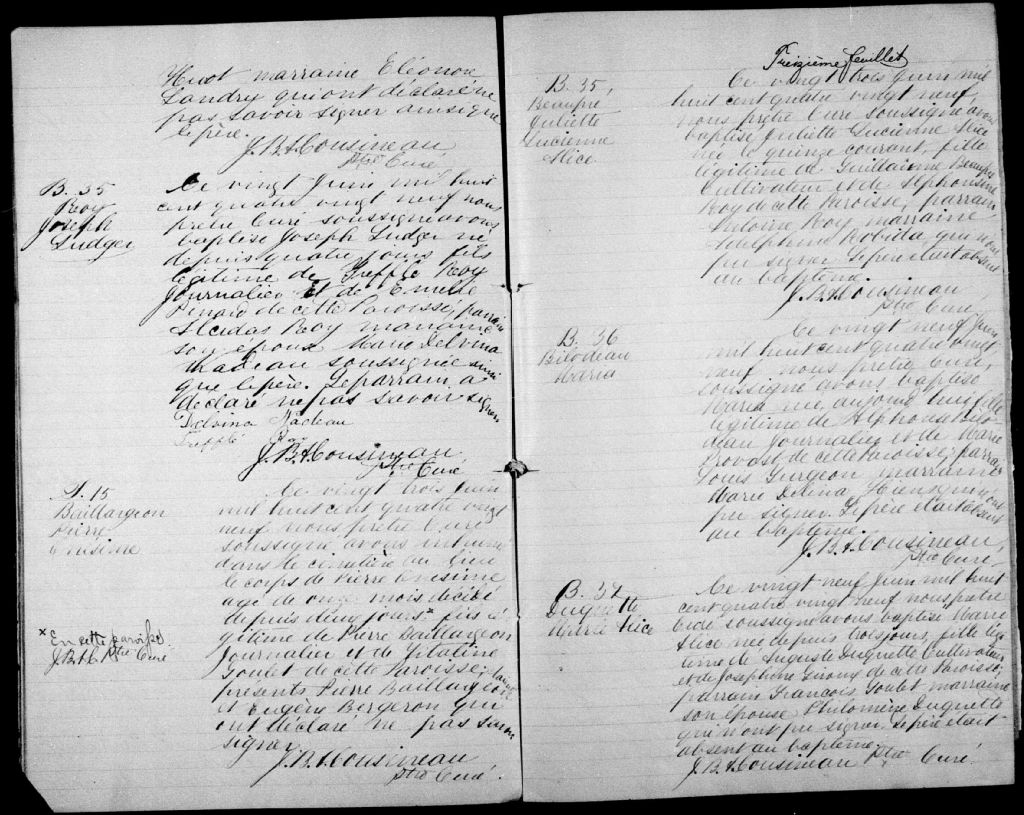 Huot marraine Eléonore
Landry qui ont déclaré ne
pas savoir signer ainsi que
le père.
J.B.H. Cousineau
ptre Curé
B. 35
Roy
Joseph
Ludger
Ce vingt Juin mil huit
cent quatre vingt neuf nous
prêtre Curé soussigné avons
baptisé Joseph Ludger né
depuis quatre jours fils
légitime de Trefflé Roy
Journalier et de Emélie
Pinard de cette Paroisse, parrain
Alcidas Roy marraine
son épouse Marie Delvina
Nadeau soussignée ainsi
que le père. Le parrain a
déclaré ne pas savoir signer
Delvina Nadeau
Trefflé Roy
J.B.H. Cousineau
ptre Curé
S. 15
Baillargeon
Pierre
Onésime
Ce vingt trois Juin
mil huit cent quatre vingt
neuf nous prêtre Curé
soussigné avons inhumé
dans le cimetière du lieu
le corps de Pierre Onésime
agé de onze mois décédé
depuis deux jours* fils lé
gitime de Pierre Baillargeon
Journalier et de Vitaline
Goulet de cette Paroisse;
présents Pierre Baillargeon
et Eugène Bergeron qui
ont déclaré ne pas savoir
signer
J.B.H. Cousineau
ptre Curé.
* En cette paroisse.
J.B.H.C. ptre Curé
Treizième feuillet
B. 35,
Beaupré
Juliette
Lucienne
Alice
Ce vingt trois Juin mil
huit cent quatre vingt neuf,
nous prêtre Curé soussigné avons
baptisé Juliette Lucienne Alice
née le quinze courant, fille
légitime de Guillaume Beaupré
Cultivateur et de Alphonsine
Roy de cette Paroisse, parrain
Antoine Roy marraine
Adelphine Robida qui n'ont
pu signer. Le père était absent
au baptême.
J.B.H. Cousineau
ptre Curé.
B. 36
Bilodeau
Maria
Ce vingt neuf Juin
mil huit cent quatre vingt
neuf nous prêtre Curé,
soussigné avons baptisé
Maria née aujourd'hui fille
légitime de Alphonse Bilo
deau Journalier et de Marie
Provost de cette Paroisse; parrain
Louis Turgeon marraine
Marie Délina
pu signer. Le père était absent
au baptême.
J.B.H. Cousineau,
ptre Curé.
B. 37
Duquette
Marie Alice
Ce vingt neuf Juin mil huit
cent quatre vingt neuf nous prêtre
Curé soussigné avons baptisé Marie
Alice née depuis trois jours, fille légi
time de Auguste Duquette Cultivateur
et de Josephine Giroux de cette Paroisse;
parrain François Goulet marraine
son épouse Philomène Duquette
qui n'ont pu signer. Le père était
absent au baptême.
J.B.H. Cousineau ptre Curé.